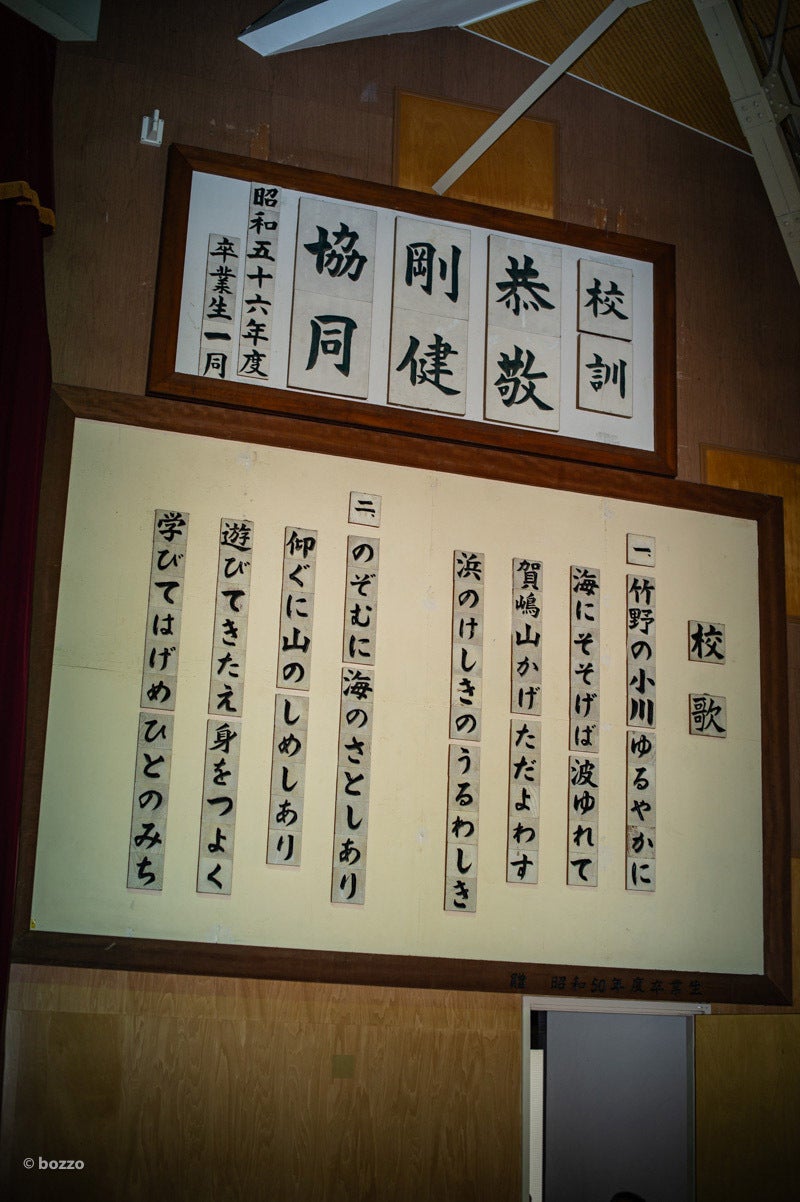 校訓
恭敬
剛健
協同
昭和五十六年度
卒業生一同
校歌
一、竹野の小川ゆるやかに
海にそそげば波ゆれて
賀嶋山かげただよわす
浜のけしきのうるわしき
二、のぞむに海のさとしあり
仰ぐに山のしめしあり
遊びてきたえ身をつよく
学びてはげめひとのみち
贈 昭和50年度卒業生
© bozzo